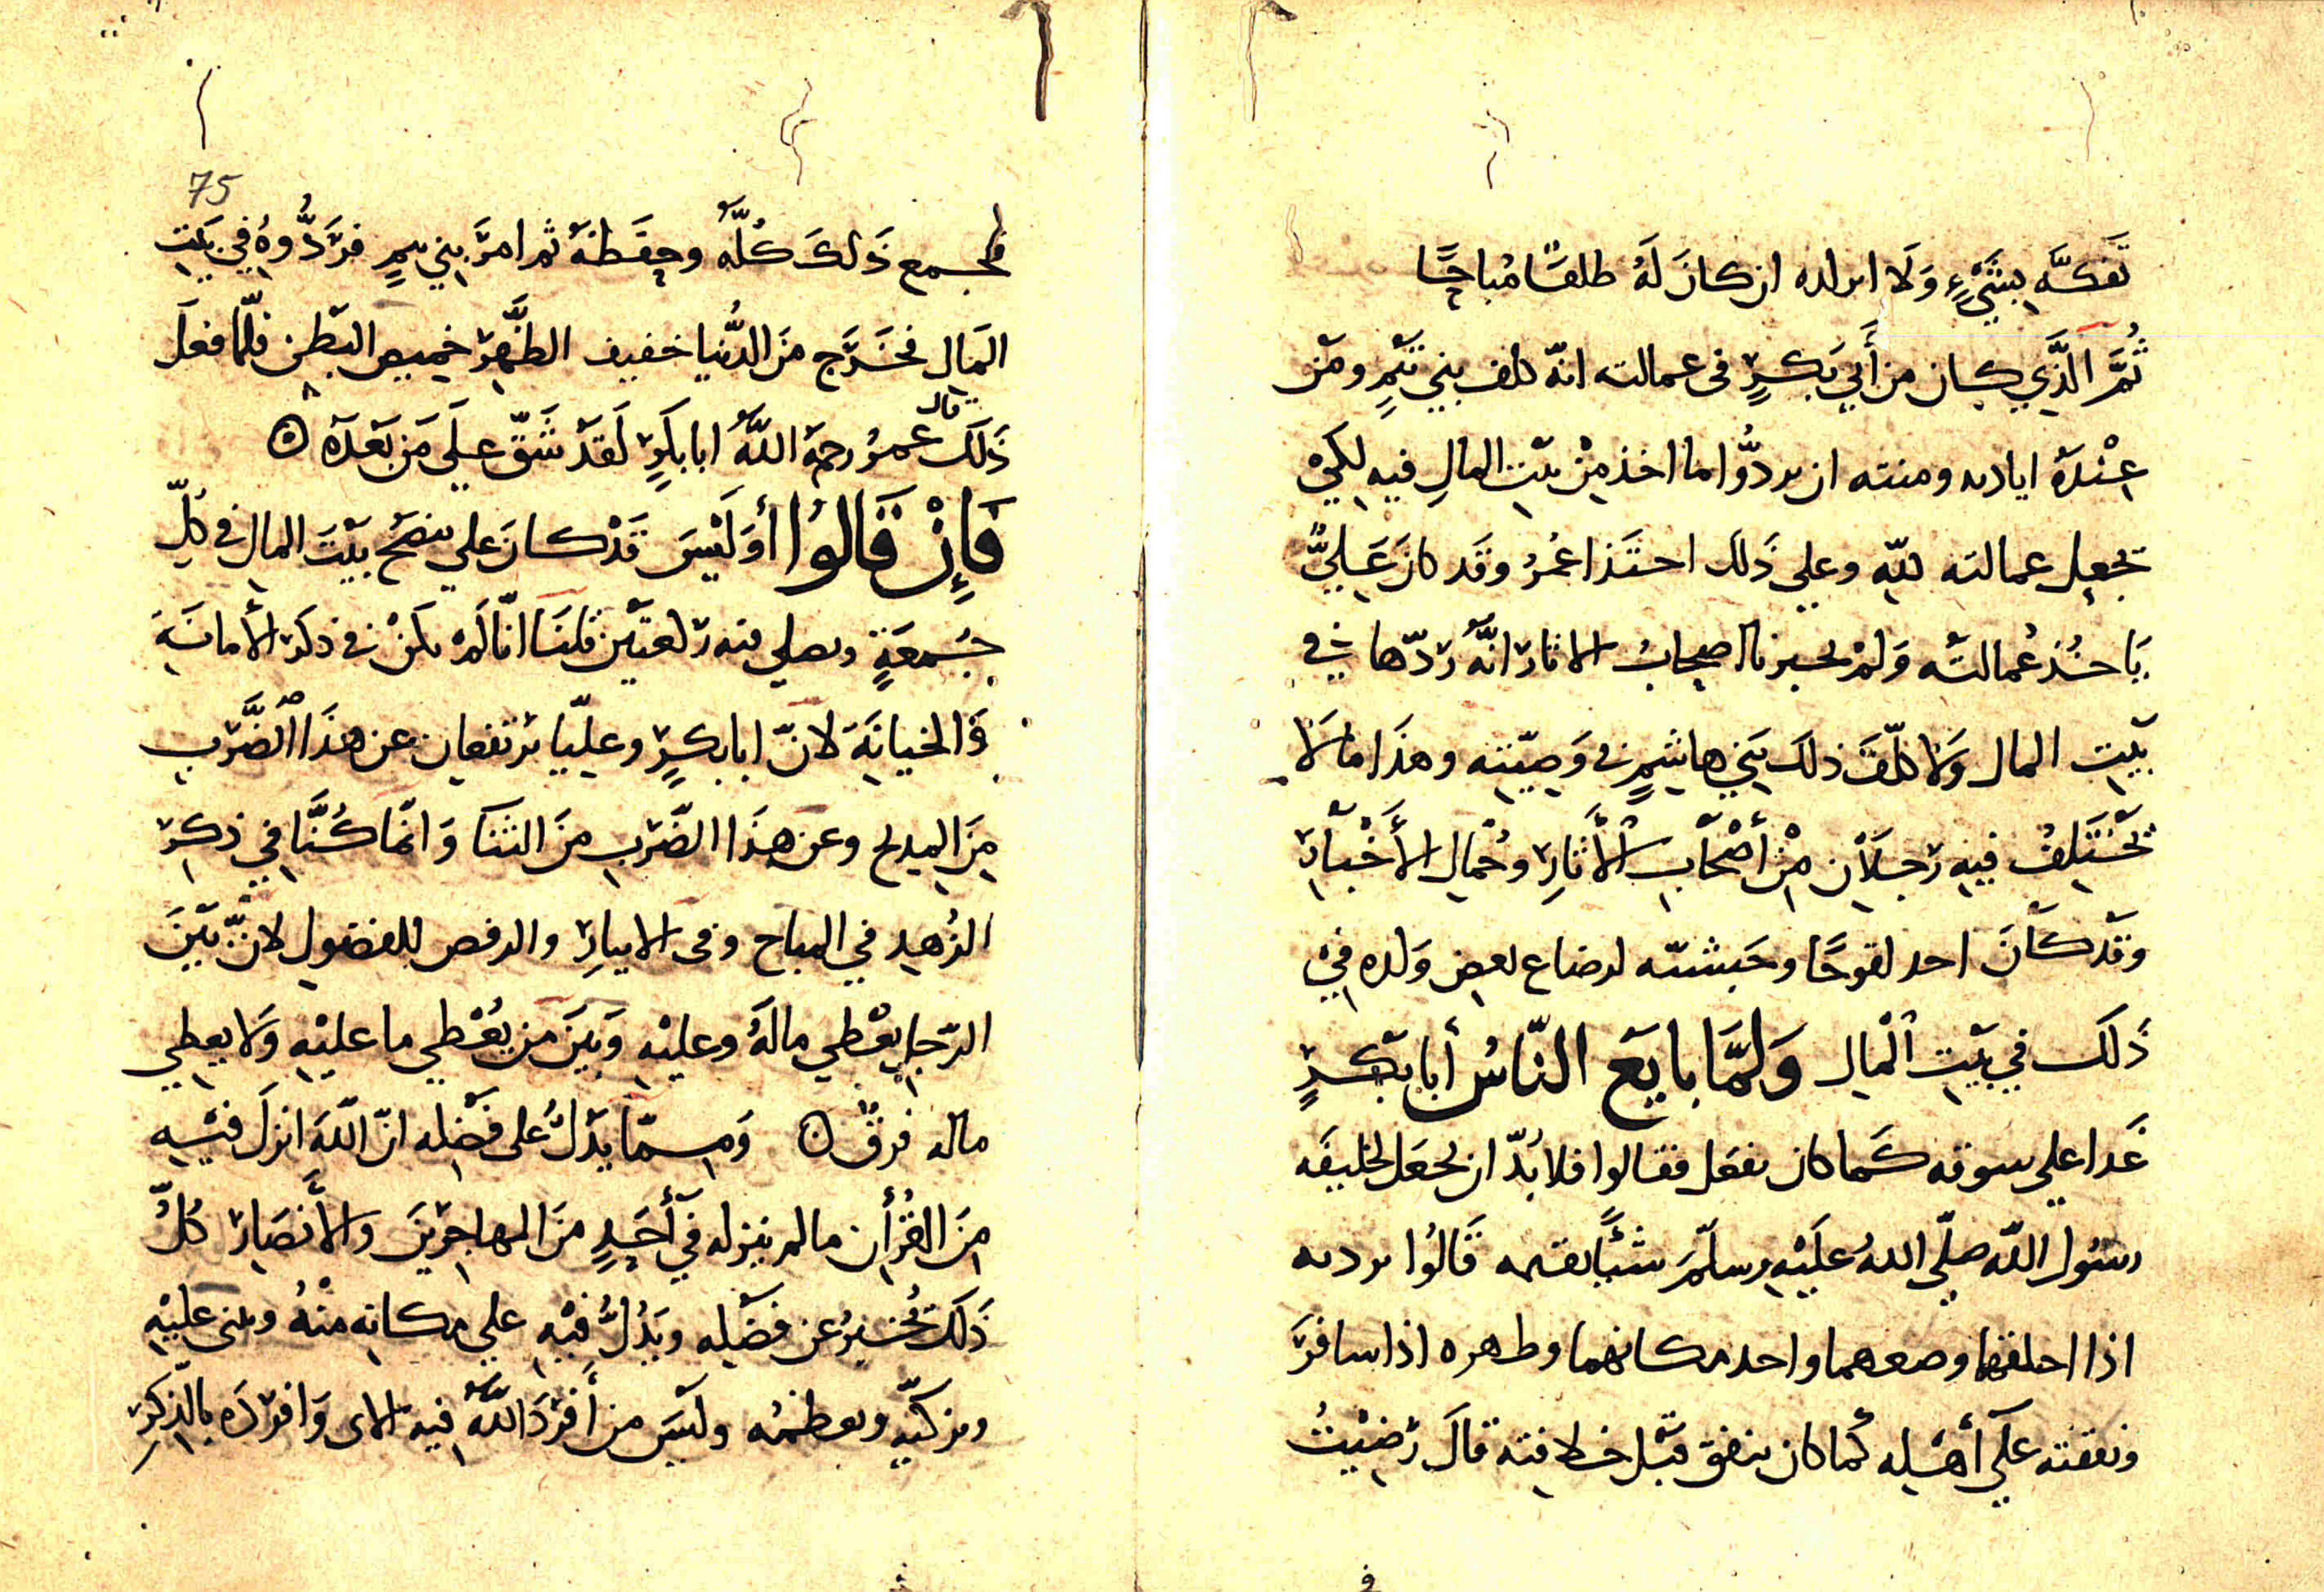 تفكه بشيء ولا ان كان له طلقا مباحا
ثم الذي كان من أبي بكر في عمالته انه كلف بني تيم ومن
عنده اياديه ومنته ان يردوا ما اخذ من بيت المال فيه لكي
تجعل عمالته لله وعلي ذلك احتذا عمر وقد كان علي
ياخذ عمالته ولم يخبرنا اصحاب الاثار انه ردها في
بيت المال ولا كلف ذلك بني هاشم في وصيته وهذا ما لا
يختلف فيه رجلان من أصحاب الأثار وحمال الأخبار
وقد كان اخذ لقوحا وحبشيه لرضاع بعض ولده في
ذلك في بيت المال ولما بايع الناس أبا بكر
غدا علي سوقه كما كان يفعل فقالوا فلا بد ان نجعل لخليفه
رسول الله صلي الله عليه وسلم شيئا يقيمه قالوا برديه
اذا اخلقهما وضعهما واخذ مكانهما وظهره اذا سافر
ونفقته علي أهله كما كان ينفق قبل خلافته قال رضيت
75
فجمع ذلك كله وحفظه ثم امر بني تيم فردوه في بيت
المال فخرج من الدنيا خفيف الظهر خميص البطن فلما فعل
ذلك قال عمر رحم الله ابا بكر لقد شق علي من بعده ۝
فإن قالوا أوليس قد كان علي ينضح بيت المال في كل
جمعة ويصلي فيه ركعتين قلنا انا لم نكن في ذكر الأمانة
والخيانة لان ابا بكر وعليا يرتفعان عن هذا الضرب
من المديح وعن هذا الضرب من الثنا وانما كنا في ذكر
الزهد في المباح وفي الايثار والرفض للفضول لان بين
الرجل يعطي ماله وعليه وبين من يعطي ما عليه ولا يعطي
ماله فرق ۝ ومما يدل على فضله ان الله انزل فيه
من القرأن ما لم ينزله في أحد من المهاجرين والأنصار كل
ذلك يخبر عن فضله ويدل فيه علي مكانه منه ويثني عليه
ويزكيه ويعظمه وليس من أفرد الله فيه الاي وافرده بالذكر